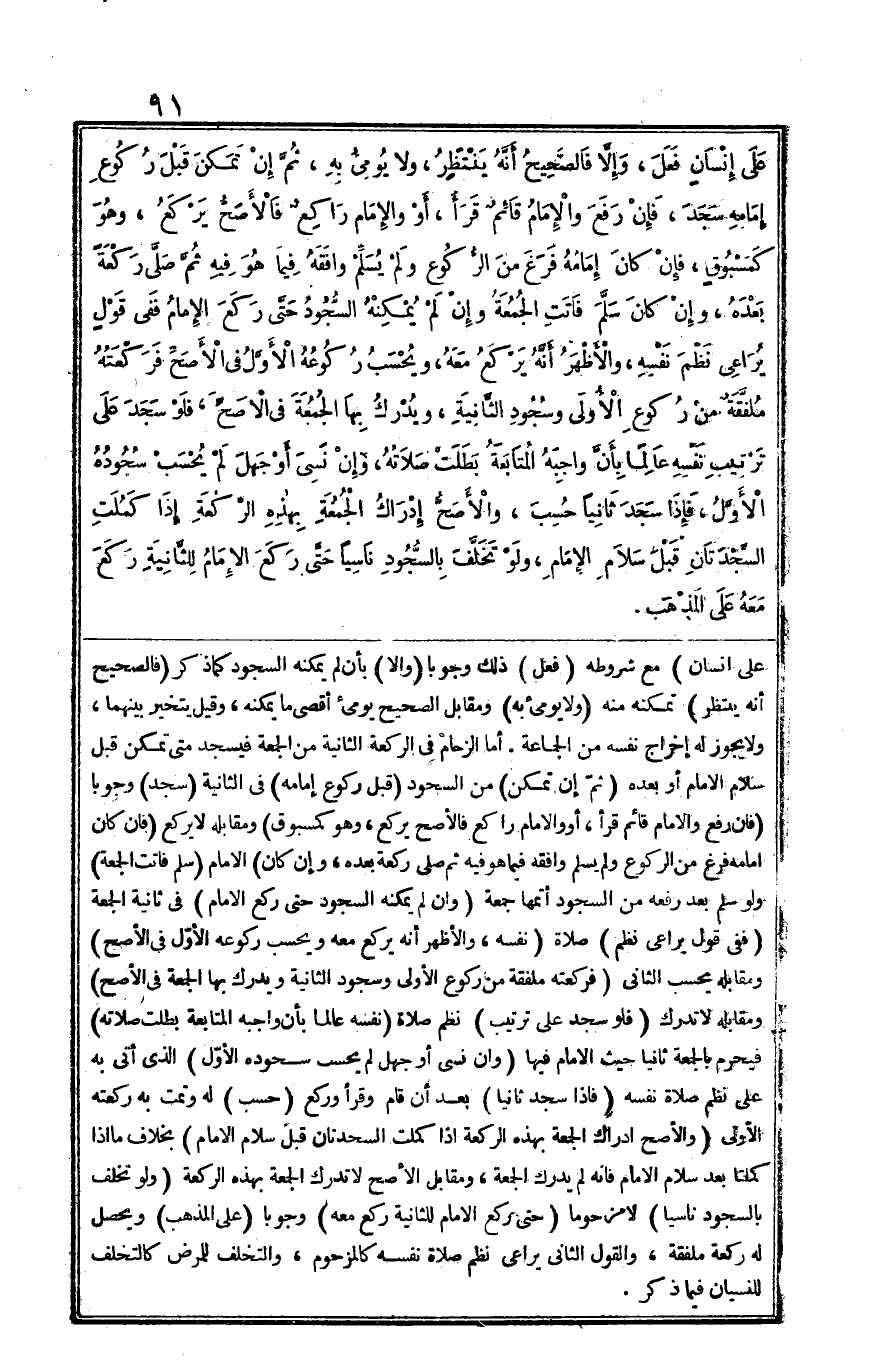 ٩١
عَلَى إِنْسَانٍ فَعَلَ ، وَإِلَّا فَالصَّحِيحُ أَنَّهُ يَنْتَظِرُ ، ولا يُومِئُ بِهِ ، ثُمَّ إِنْ تَمَكَّنَ قَبْلَ رُكُوعِ
إِمَامِهِ سَجَدَ ، فَإِنْ رَفَعَ والْإِمَامُ قَائِمٌ قَرَأَ ، أَوْ والإِمَام رَاكِعٌ فَالْأَصَحُّ يَرْكَعُ ، وهُوَ
كَمَسْبُوقٍ ، فَإِنْ كانَ إِمَامُهُ فَرَغَ مِنَ الرُّكُوعِ ولَمْ يُسَلِّمْ وافَقَهُ فِيمَا هُوَ فِيهِ ثُمَّ صَلَّى رَكْعَةً
بَعْدَهُ ، وإِنْ كانَ سَلَّمَ فَاتَتِ الْجُمُعَةُ وإِنْ لَمْ يُمْكِنْهُ السُّجُودُ حَتَّى رَكَعَ الإِمَامُ فَفِى قَوْلٍ
يُرَاعِى نَظْمَ نَفْسِهِ ، والْأَظْهَرُ أَنَّهُ يَرْكَعُ مَعَهُ ، ويُحْسَبُ رُكُوعُهُ الْأَوَّلُ فى الْأَصَحِّ فَرَكْعَتُهُ
مُلَفَّقَةٌ مِنْ رُكُوعِ الْأُولَى وسُجُودِ الثَّانِيَةِ ، ويُدْرِكُ بِهَا الْجُمُعَةَ فى الْأَصَحِّ ، فَلَوْ سَجَدَ عَلَى
تَرْتِيبِ نَفْسِهِ عَالِمًا بِأَنَّ واجِبَهُ الْمُتَابَعَةُ بَطَلَتْ صَلَاتُهُ ، وَإِنْ نَسِىَ أَوْ جَهِلَ لَمْ يُحْسَبْ سُجُودُهُ
الْأَوَّلُ ، فَإِذَا سَجَدَ ثَانِياً حُسِبَ ، والْأَصَحُّ إِدْرَاكُ الْجُمُعَةِ بِهٰذِهِ الرَّكْعَةِ إِذَا كَمُلَتِ
السَّجْدَتَانِ قَبْلَ سَلَامِ الإِمَامِ ، ولَوْ تَخَلَّفَ بِالسُّجُودِ نَاسِياً حَتَّى رَكَعَ الإِمَامُ لِلثَّانِيَةِ رَكَعَ
مَعَهُ عَلَى الْمَذْهَبِ .
على انسان ) مع شروطه ( فعل ) ذلك وجوبا ( والا ) بأن لم يمكنه السجود كما ذكر ( فالصحيح
أنه ينتظر ) تمكنه منه ( ولا يومئ به ) ومقابل الصحيح يومئ أقصى ما يمكنه ، وقيل يتخير بينهما ،
ولا يجوز له إخراج نفسه من الجماعة . أما الزحام فى الركعة الثانية من الجمعة فيسجد متى تمكن قبل
سلام الامام أو بعده ( ثم إن تمكن ) من السجود ( قبل ركوع إمامه ) فى الثانية ( سجد ) وجوبا
( فان رفع والامام قائم قرأ ، أو والامام راكع فالأصح يركع ، وهو كمسبوق ) ومقابله لا يركع ( فان كان
امامه فرغ من الركوع ولم يسلم وافقه فيما هو فيه ثم صلى ركعة بعده ، وإن كان ) الامام ( سلم فاتت الجمعة )
ولو سلم بعد رفعه من السجود أتمها جمعة ( وان لم يمكنه السجود حتى ركع الامام ) فى ثانية الجمعة
( ففى قول يراعى نظم ) صلاة ( نفسه ، والأظهر أنه يركع معه ويحسب ركوعه الأوّل فى الأصح )
ومقابله يحسب الثانى ( فركعته ملفقة من ركوع الأولى وسجود الثانية ويدرك بها الجمعة فى الأصح )
ومقابله لا تدرك ( فلو سجد على ترتيب ) نظم صلاة ( نفسه عالما بأن واجبه المتابعة بطلت صلاته )
فيحرم بالجمعة ثانيا حيث الامام فيها ( وان نسى أو جهل لم يحسب سجوده الأوّل ) الذى أتى به
على نظم صلاة نفسه ( فاذا سجد ثانيا ) بعد أن قام وقرأ وركع ( حسب ) له وتمت به ركعته
الأولى ( والأصح ادراك الجمعة بهذه الركعة اذا كملت السجدتان قبل سلام الامام ) بخلاف ما اذا
كملتا بعد سلام الامام فانه لم يدرك الجمعة ، ومقابل الأصح لا تدرك الجمعة بهذه الركعة ( ولو تخلف
بالسجود ناسيا ) لا مزحوما ( حتى ركع الامام للثانية ركع معه ) وجوبا ( على المذهب ) ويحصل
له ركعة ملفقة ، والقول الثانى يراعى نظم صلاة نفسه كالمزحوم ، والتخلف للمرض كالتخلف
للنسيان فيما ذكر .